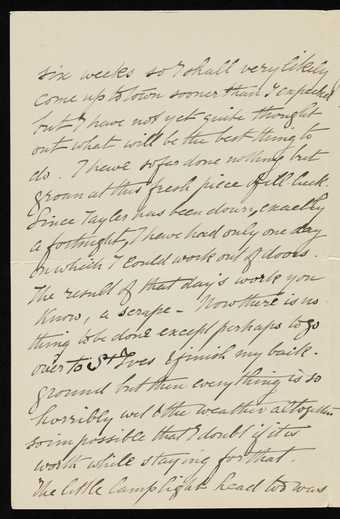 six weeks so I shall very likely
come up to town sooner than I expected
but I have not yet quite thought
out what will be the best thing to
do. I have so far done nothing but
groan at this fresh piece of ill luck.
Since Tayler has been down, exactly
a fortnight, I have had only one day
on which I could work out of doors.
The result of that day's work you
know, a scrape - Now there is no
thing to be done except perhaps to go
over to St Ives & finish my back-
ground but then everything is so
horribly wet & the weather altogether
so impossible that I doubt if it is
worth while staying for that.
The little lamplight head too was